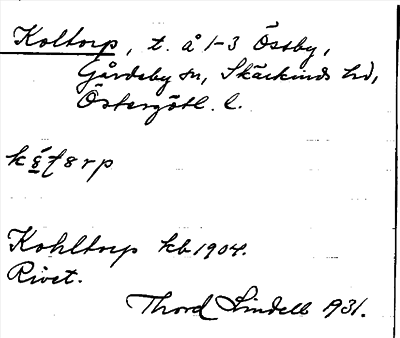 Koltorp, t. å 1-3 Östby,
Gårdeby sn, Skärkinds hd,
Östergötl. l.
Kohltorp kb 1904.
Rivet.
Thord Lindell 1931.